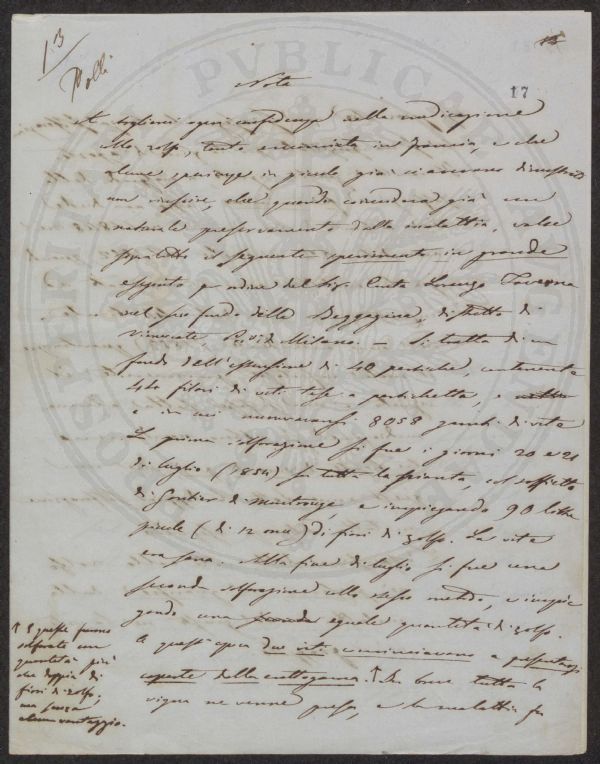 13
Polli
17
Nota
A togliermi ogni confidenza nella medicazione
collo zolfo, tanto encomiata in Francia, e che
alcune sperienze in piccolo già ci avevano dimostrato
non riescire, che quando coincideva già un
naturale preservamento dalla malattia, valse
sopratutto il seguente sperimento in grande
eseguito per ordine del Sig. Conte Lorenzo Taverna
nel suo fondo della Bazzagine, distretto di
Vimercate, Prov. di Milano. — Si tratta di un
fondo dell'estensione di 40 pertiche, contenente
460 filari di vite tese a pertichetta, e
e in cui numeravansi 8058 gambi di vite
La prima solforazione si fece i giorni 20 e 21
di luglio (1854) su tutta la pianta, col soffietto
di Gontier di Montrouge, e impiegando 90 libbre
piccole (di 12 once) di fiori di zolfo. La vite
era sana. Alla fine di luglio si fece una
seconda solforazione collo stesso metodo, e impie
gando una seconda eguale quantità di zolfo.
A quest'epoca due viti cominciavano a presentarsi
coperte della crittogama. In breve tutta la
vigna ne venne presa, e la malattia fu
e queste furono
solforate con
quantità più
che doppia di
fiori di zolfo;
ma senza
alcun vantaggio.